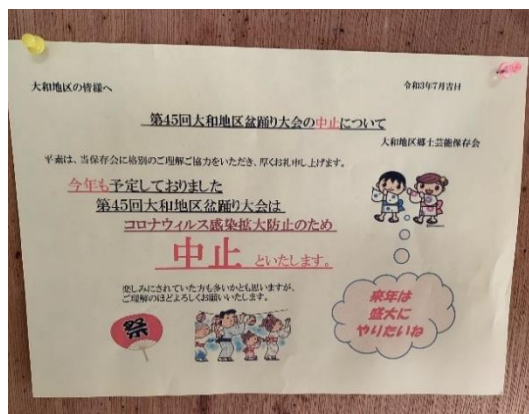 大和地区の皆様へ
令和3年7月吉日
第45回大和地区盆踊り大会の中止について
大和地区郷土芸能保存会
平素は、当保存会に格別のご理解ご協力をいただき、厚くお礼申し上げます。
今年も予定しておりました
第45回大和地区盆踊り大会は
コロナウィルス感染拡大防止のため
中止といたします。
楽しみにされていた方も多いかとも思いますが、
ご理解のほどよろしくお願いいたします。
祭
来年は
盛大に
やりたいね